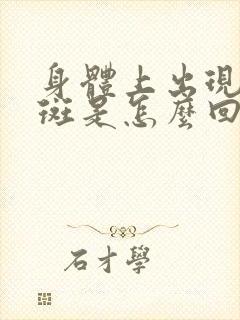 身體上出現
斑是怎麼回
石才學